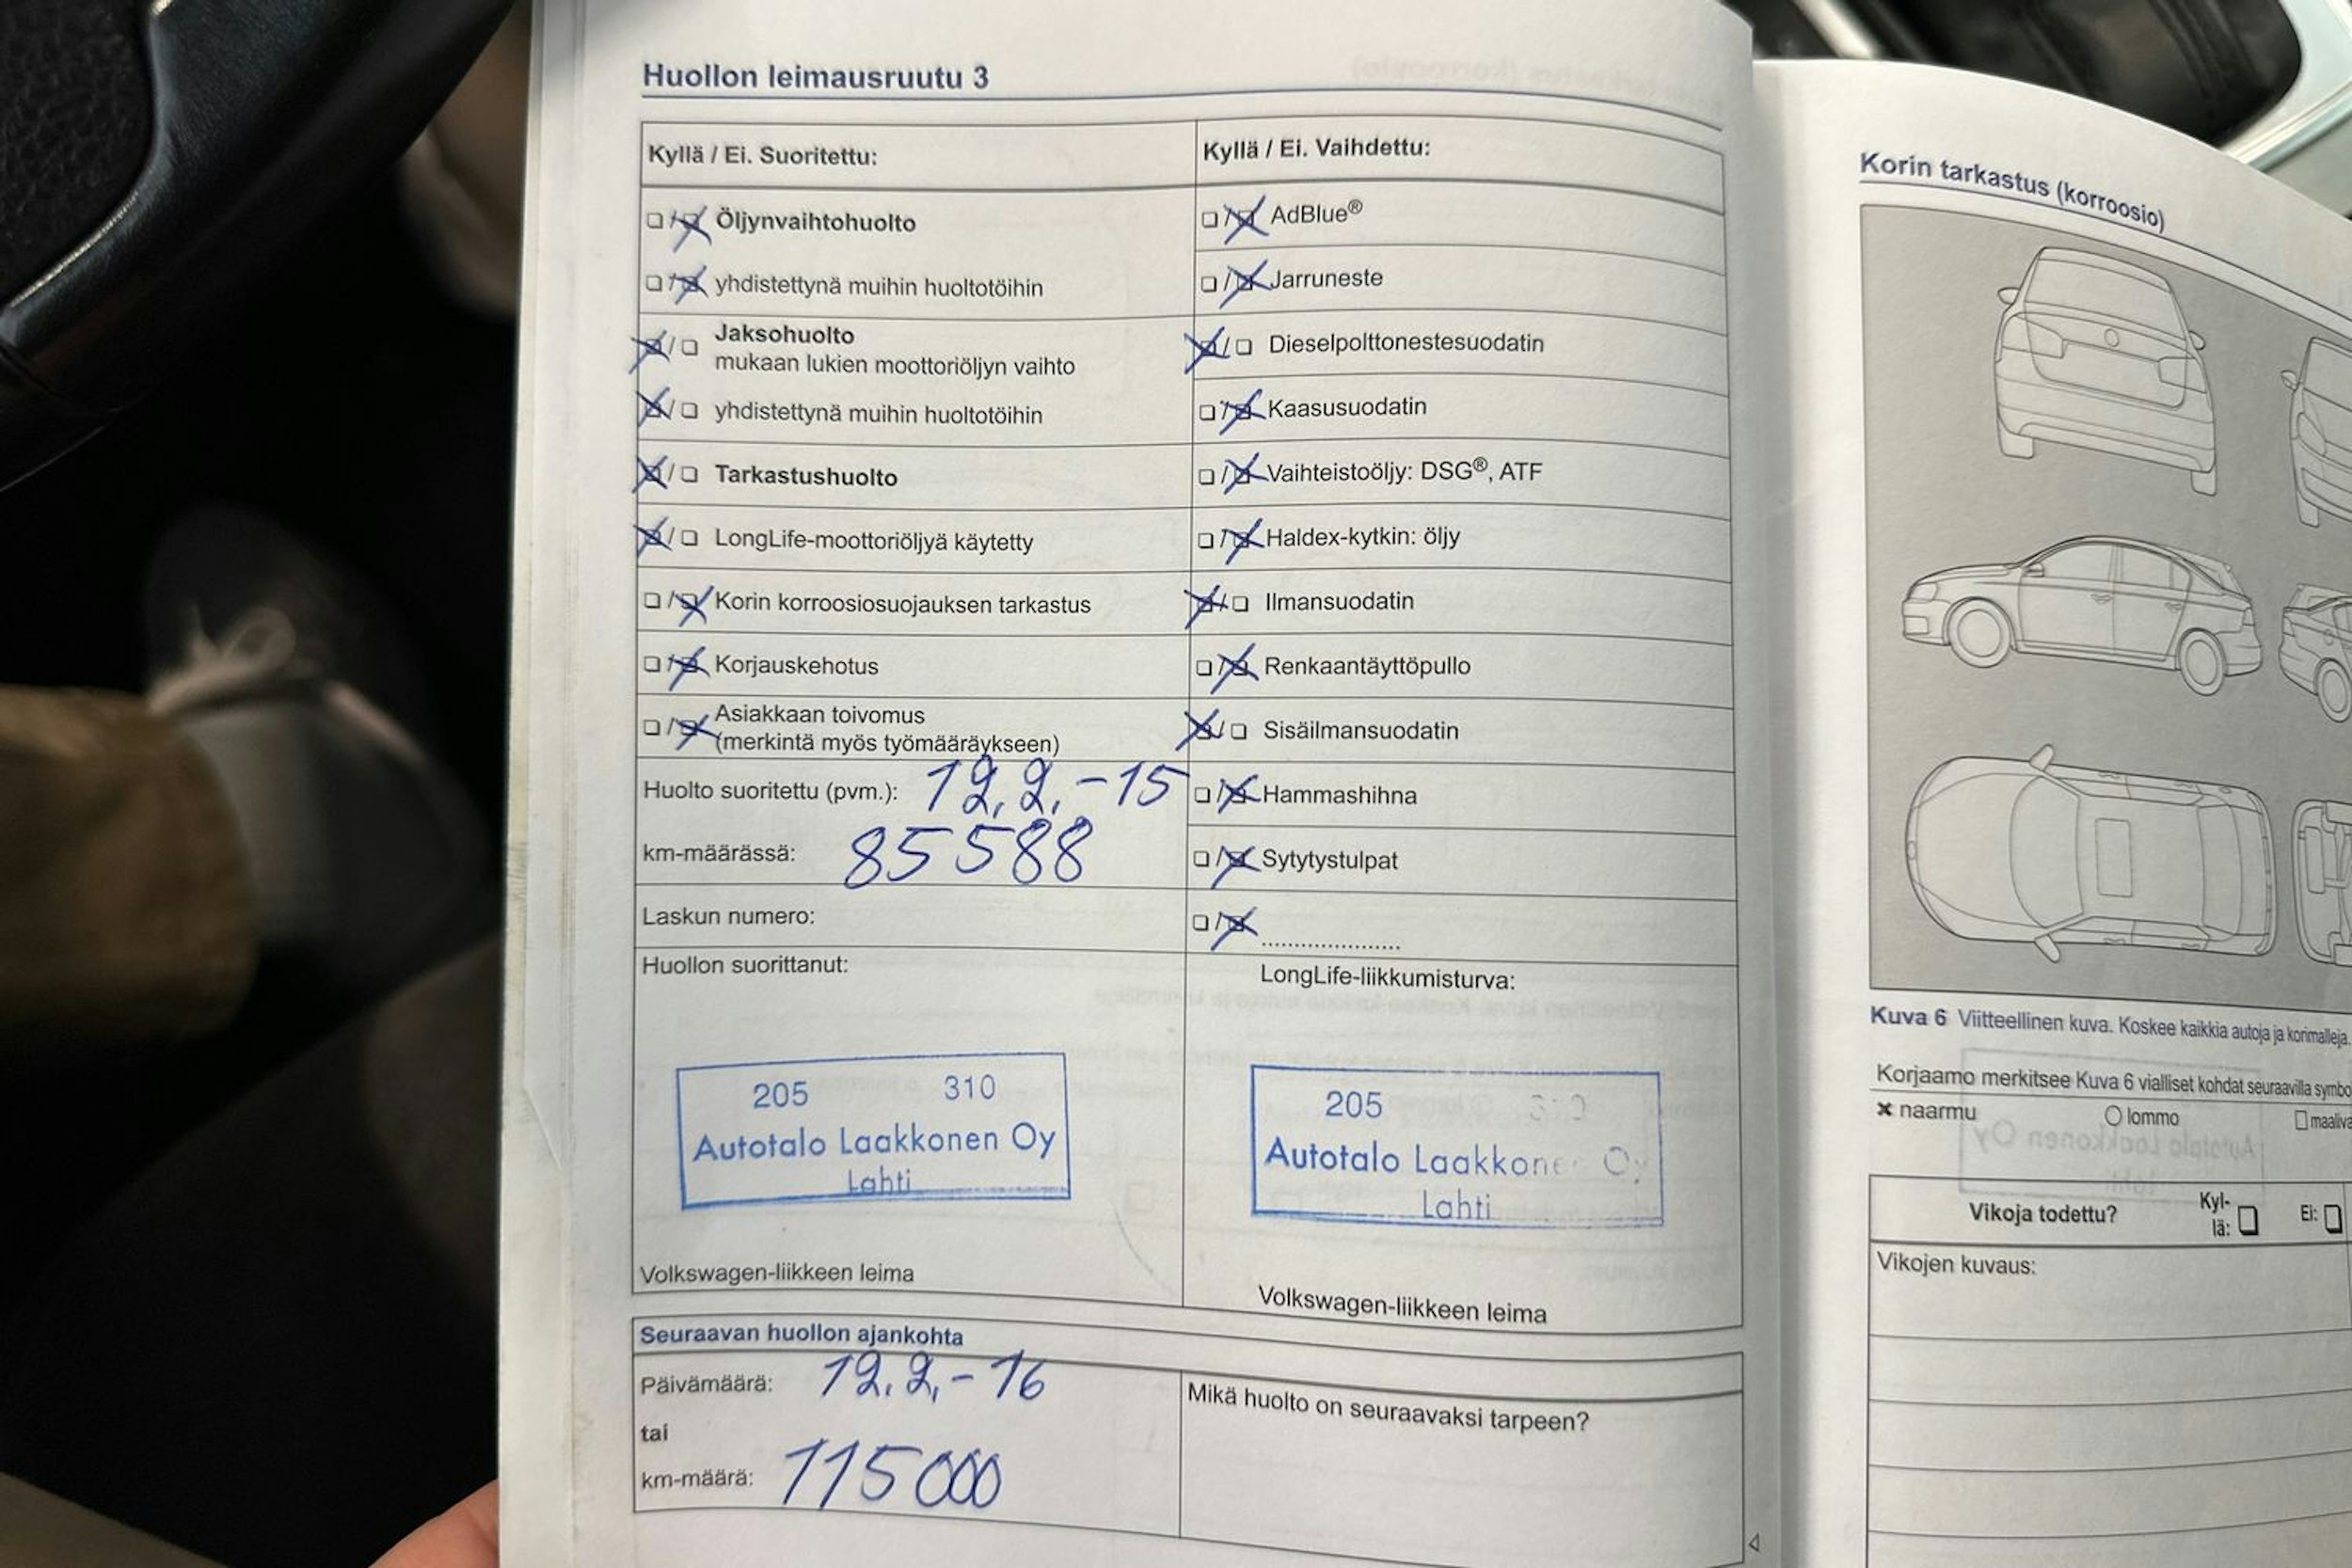 Huollon leimausruutu 3
Kyllä / Ei. Suoritettu:
Öljynvaihtohuolto
yhdistettynä muihin huoltotöihin
Jaksohuolto
mukaan lukien moottoriöljyn vaihto
yhdistettynä muihin huoltotöihin
Tarkastushuolto
LongLife-moottoriöljyä käytetty
Korin korroosiosuojauksen tarkastus
Korjauskehotus
Asiakkaan toivomus
(merkintä myös työmääräykseen)
Huolto suoritettu (pvm.): 12.2.-15
km-määrässä: 85588
Laskun numero:
Huollon suorittanut:
205 310
Autotalo Laakkonen Oy
Lahti
Volkswagen-liikkeen leima
Kyllä / Ei. Vaihdettu:
AdBlue®
Jarruneste
Dieselpolttonestesuodatin
Kaasusuodatin
Vaihteistoöljy: DSG®, ATF
Haldex-kytkin: öljy
Ilmansuodatin
Renkaantäyttöpullo
Sisäilmansuodatin
Hammashihna
Sytytystulpat
.....................
LongLife-liikkumisturva:
205 310
Autotalo Laakkonen Oy
Lahti
Volkswagen-liikkeen leima
Seuraavan huollon ajankohta
Päivämäärä: 12.2.-16
tai
km-määrä: 115000
Mikä huolto on seuraavaksi tarpeen?
Korin tarkastus (korroosio)
Kuva 6 Viitteellinen kuva. Koskee kaikkia autoja ja korimalleja.
Korjaamo merkitsee Kuva 6 vialliset kohdat seuraavilla
naarmu lommo
Vikoja todettu? Kyl-
lä: Ei:
Vikojen kuvaus: